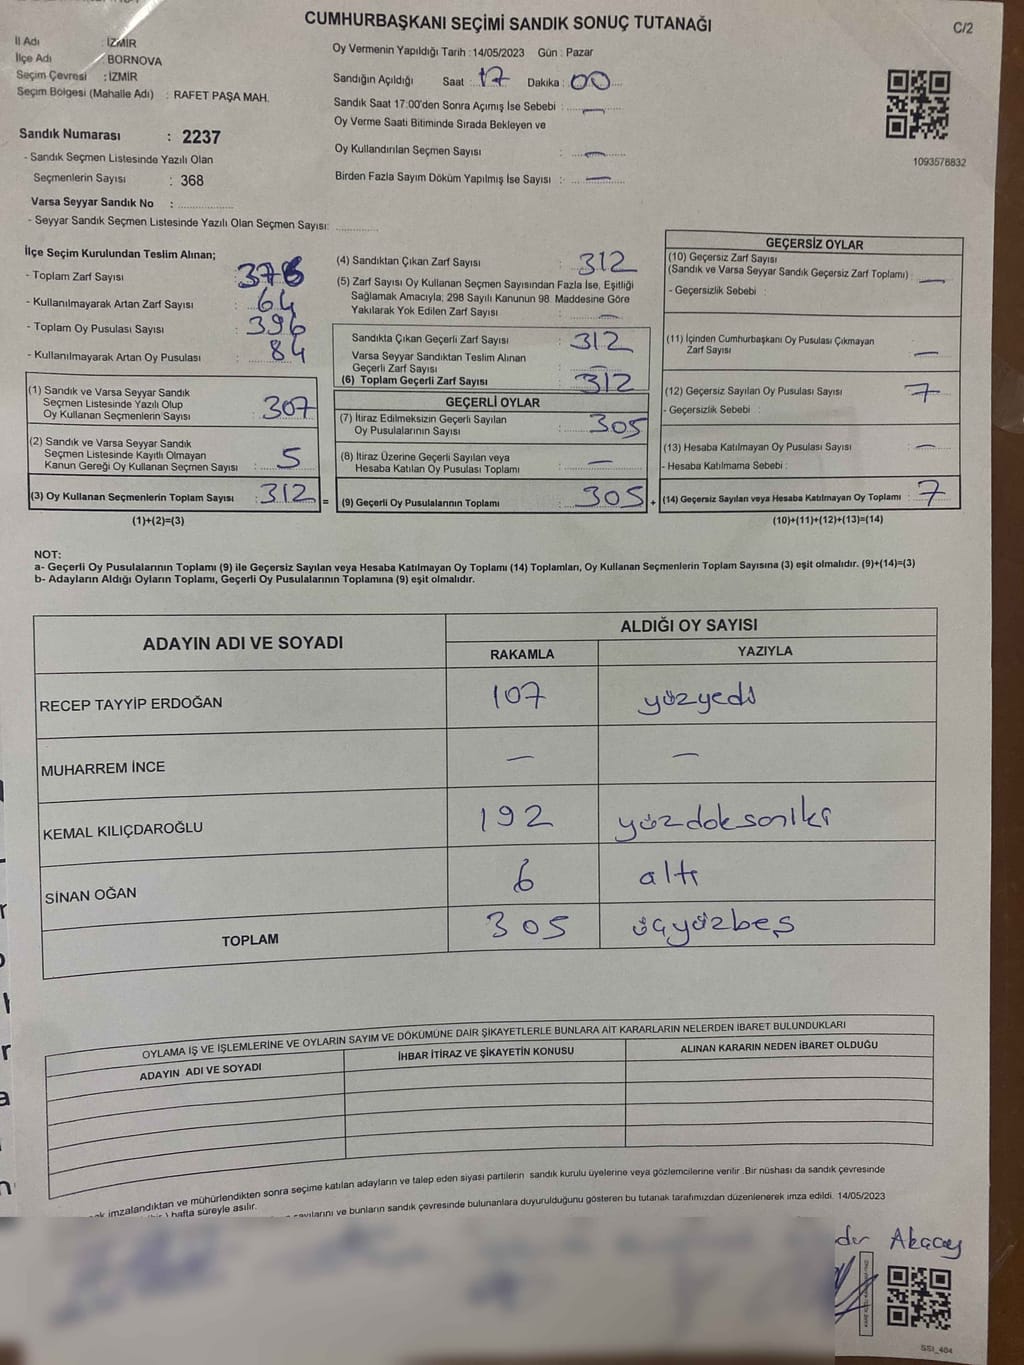 CUMHURBAŞKANI SEÇİMİ SANDIK SONUÇ TUTANAĞI
C/2
İl Adı : İZMİR
İlçe Adı : BORNOVA
Seçim Çevresi : İZMİR
Seçim Bölgesi (Mahalle Adı) : RAFET PAŞA MAH.
Sandık Numarası : 2237
- Sandık Seçmen Listesinde Yazılı Olan
Seçmenlerin Sayısı : 368
Varsa Seyyar Sandık No :
- Seyyar Sandık Seçmen Listesinde Yazılı Olan Seçmen Sayısı:
Oy Vermenin Yapıldığı Tarih : 14/05/2023 Gün : Pazar
Sandığın Açıldığı Saat : 17 Dakika : 00
Sandık Saat 17:00'den Sonra Açımış İse Sebebi : —
Oy Verme Saati Bitiminde Sırada Bekleyen ve
Oy Kullandırılan Seçmen Sayısı : —
Birden Fazla Sayım Döküm Yapılmış İse Sayısı : —
1093578832
İlçe Seçim Kurulundan Teslim Alınan;
- Toplam Zarf Sayısı : 376
- Kullanılmayarak Artan Zarf Sayısı : 64
- Toplam Oy Pusulası Sayısı : 396
- Kullanılmayarak Artan Oy Pusulası : 84
(1) Sandık ve Varsa Seyyar Sandık
Seçmen Listesinde Yazılı Olup
Oy Kullanan Seçmenlerin Sayısı : 307
(2) Sandık ve Varsa Seyyar Sandık
Seçmen Listesinde Kayıtlı Olmayan
Kanun Gereği Oy Kullanan Seçmen Sayısı : 5
(3) Oy Kullanan Seçmenlerin Toplam Sayısı : 312 =
(1)+(2)=(3)
(4) Sandıktan Çıkan Zarf Sayısı : 312
(5) Zarf Sayısı Oy Kullanan Seçmen Sayısından Fazla İse, Eşitliği
Sağlamak Amacıyla; 298 Sayılı Kanunun 98. Maddesine Göre
Yakılarak Yok Edilen Zarf Sayısı : —
Sandıkta Çıkan Geçerli Zarf Sayısı : 312
Varsa Seyyar Sandıktan Teslim Alınan
Geçerli Zarf Sayısı : —
(6) Toplam Geçerli Zarf Sayısı : 312
GEÇERLİ OYLAR
(7) İtiraz Edilmeksizin Geçerli Sayılan
Oy Pusulalarının Sayısı : 305
(8) İtiraz Üzerine Geçerli Sayılan veya
Hesaba Katılan Oy Pusulası Toplamı : —
(9) Geçerli Oy Pusulalarının Toplamı : 305 +
GEÇERSİZ OYLAR
(10) Geçersiz Zarf Sayısı
(Sandık ve Varsa Seyyar Sandık Geçersiz Zarf Toplamı) : —
- Geçersizlik Sebebi :
(11) İçinden Cumhurbaşkanı Oy Pusulası Çıkmayan
Zarf Sayısı : —
(12) Geçersiz Sayılan Oy Pusulası Sayısı : 7
- Geçersizlik Sebebi :
(13) Hesaba Katılmayan Oy Pusulası Sayısı : —
- Hesaba Katılmama Sebebi :
(14) Geçersiz Sayılan veya Hesaba Katılmayan Oy Toplamı : 7
(10)+(11)+(12)+(13)=(14)
NOT:
a- Geçerli Oy Pusulalarının Toplamı (9) ile Geçersiz Sayılan veya Hesaba Katılmayan Oy Toplamı (14) Toplamları, Oy Kullanan Seçmenlerin Toplam Sayısına (3) eşit olmalıdır. (9)+(14)=(3)
b- Adayların Aldığı Oyların Toplamı, Geçerli Oy Pusulalarının Toplamına (9) eşit olmalıdır.
ADAYIN ADI VE SOYADI ALDIĞI OY SAYISI
RAKAMLA YAZIYLA
RECEP TAYYİP ERDOĞAN 107 yüzyedi
MUHARREM İNCE — —
KEMAL KILIÇDAROĞLU 192 yüzdoksaniki
SİNAN OĞAN 6 altı
TOPLAM 305 üçyüzbeş
OYLAMA İŞ VE İŞLEMLERİNE VE OYLARIN SAYIM VE DÖKÜMÜNE DAİR ŞİKAYETLERLE BUNLARA AİT KARARLARIN NELERDEN İBARET BULUNDUKLARI
ADAYIN ADI VE SOYADI İHBAR İTİRAZ VE ŞİKAYETİN KONUSU ALINAN KARARIN NEDEN İBARET OLDUĞU
imzalandıktan ve mühürlendikten sonra seçime katılan adayların ve talep eden siyasi partilerin sandık kurulu üyelerine veya gözlemcilerine verilir .Bir nüshası da sandık çevresinde
hafta süreyle asılır.
ve bunların sandık çevresinde bulunanlara duyurulduğunu gösteren bu tutanak tarafımızdan düzenlenerek imza edildi. 14/05/2023
SSI_404